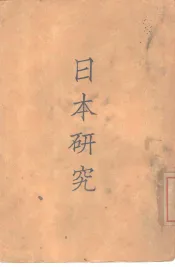 日本研究